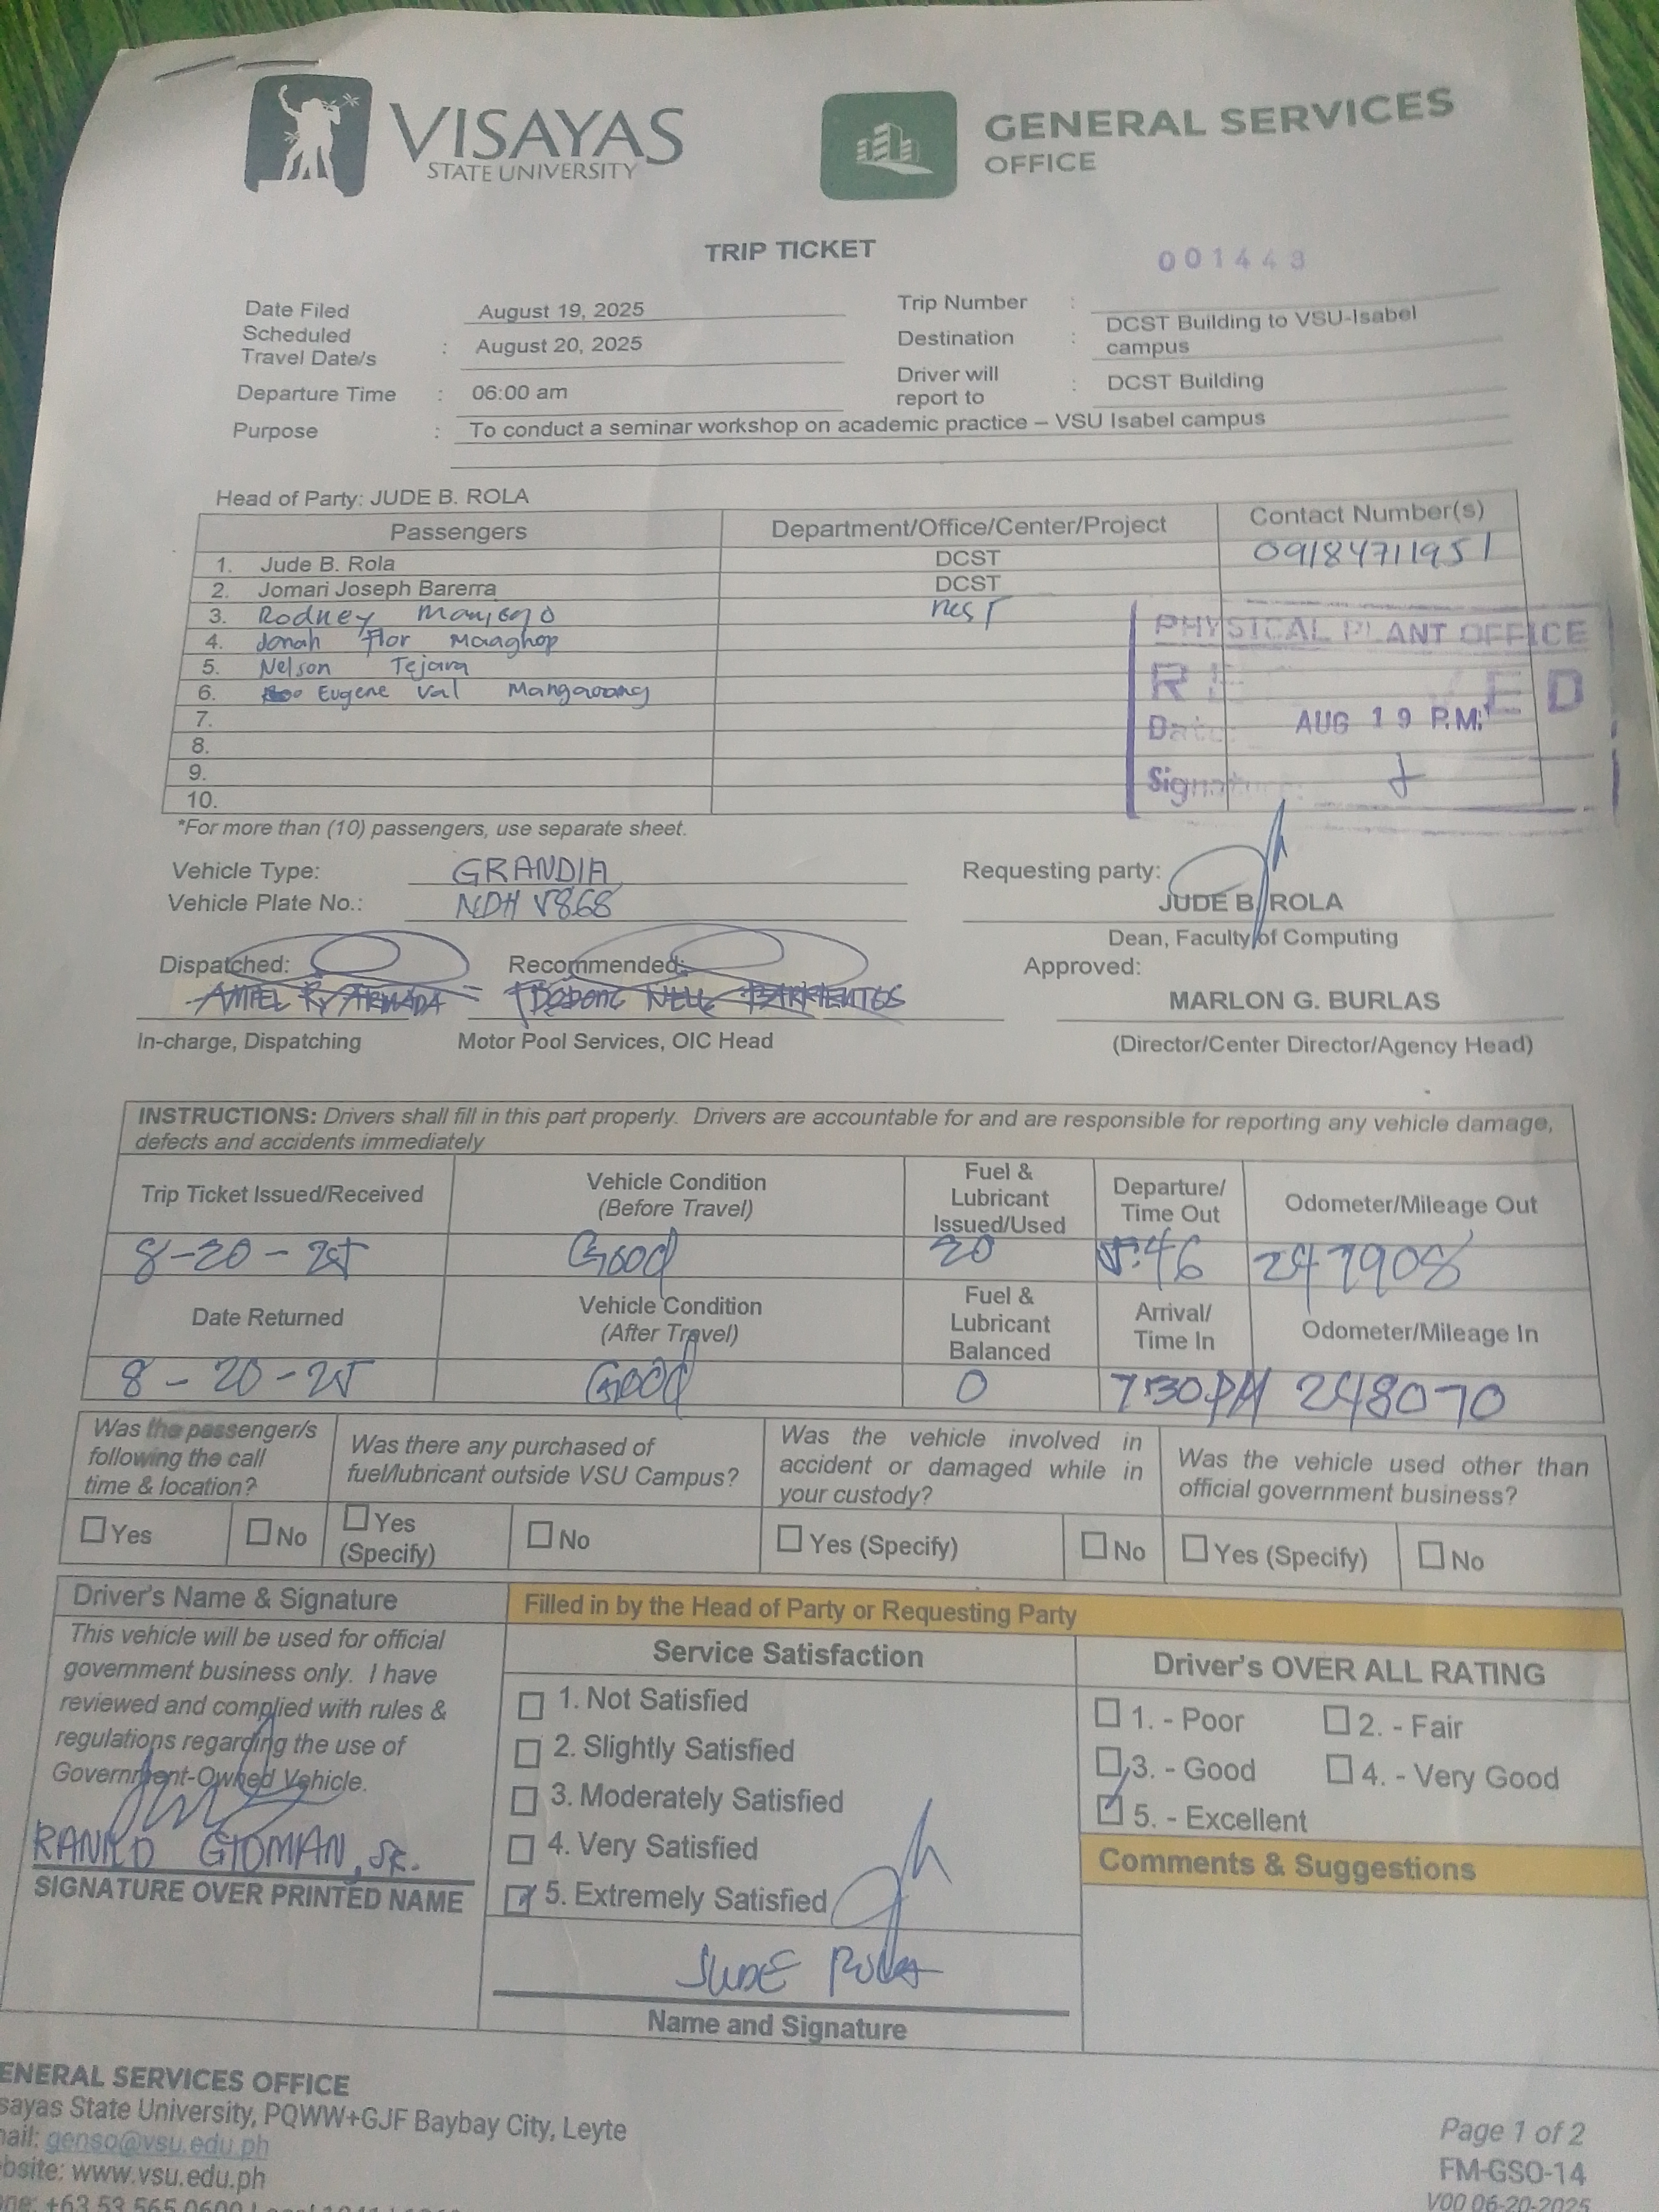 VISAYAS
STATE UNIVERSITY
GENERAL SERVICES
OFFICE
TRIP TICKET
001443
Date Filed August 19, 2025
Trip Number :
Scheduled Travel Date/s : August 20, 2025
Destination : DCST Building to VSU-Isabel campus
Departure Time : 06:00 am
Driver will report to : DCST Building
Purpose : To conduct a seminar workshop on academic practice – VSU Isabel campus
Head of Party: JUDE B. ROLA
Passengers Department/Office/Center/Project Contact Number(s)
1. Jude B. Rola DCST 09184711951
2. Jomari Joseph Barerra DCST
3. Rodney
4. Jonah Flor Maaghop
5. Nelson Tejara
6. Eugene Val Mangaoang
7.
8.
9.
10.
PHYSICAL PLANT OFFICE
Date: AUG 19 P.M.
*For more than (10) passengers, use separate sheet.
Vehicle Type: GRANDIA
Vehicle Plate No.: NDH V868
Requesting party:
JUDE B. ROLA
Dean, Faculty of Computing
Dispatched: Recommended: Approved:
MARLON G. BURLAS
In-charge, Dispatching Motor Pool Services, OIC Head (Director/Center Director/Agency Head)
INSTRUCTIONS: Drivers shall fill in this part properly. Drivers are accountable for and are responsible for reporting any vehicle damage,
defects and accidents immediately
Trip Ticket Issued/Received Vehicle Condition (Before Travel) Fuel & Lubricant Issued/Used Departure/ Time Out Odometer/Mileage Out
8-20-25 Good 20 5:46 247908
Date Returned Vehicle Condition (After Travel) Fuel & Lubricant Balanced Arrival/ Time In Odometer/Mileage In
8-20-25 Good 0 7:30PM 248070
Was the passenger/s following the call time & location? Was there any purchased of fuel/lubricant outside VSU Campus? Was the vehicle involved in accident or damaged while in your custody? Was the vehicle used other than official government business?
Yes No Yes (Specify) No Yes (Specify) No Yes (Specify) No
Driver's Name & Signature
This vehicle will be used for official
government business only. I have
reviewed and complied with rules &
regulations regarding the use of
Government-Owned Vehicle.
GIOMAN, Sr.
SIGNATURE OVER PRINTED NAME
Filled in by the Head of Party or Requesting Party
Service Satisfaction
1. Not Satisfied
2. Slightly Satisfied
3. Moderately Satisfied
4. Very Satisfied
5. Extremely Satisfied
JUDE ROLA
Name and Signature
Driver's OVER ALL RATING
1. - Poor 2. - Fair
3. - Good 4. - Very Good
5. - Excellent
Comments & Suggestions
ENERAL SERVICES OFFICE
sayas State University, PQWW+GJF Baybay City, Leyte
ail: genso@vsu.edu.ph
bsite: www.vsu.edu.ph
Page 1 of 2
FM-GSO-14
V00 06-20-2025